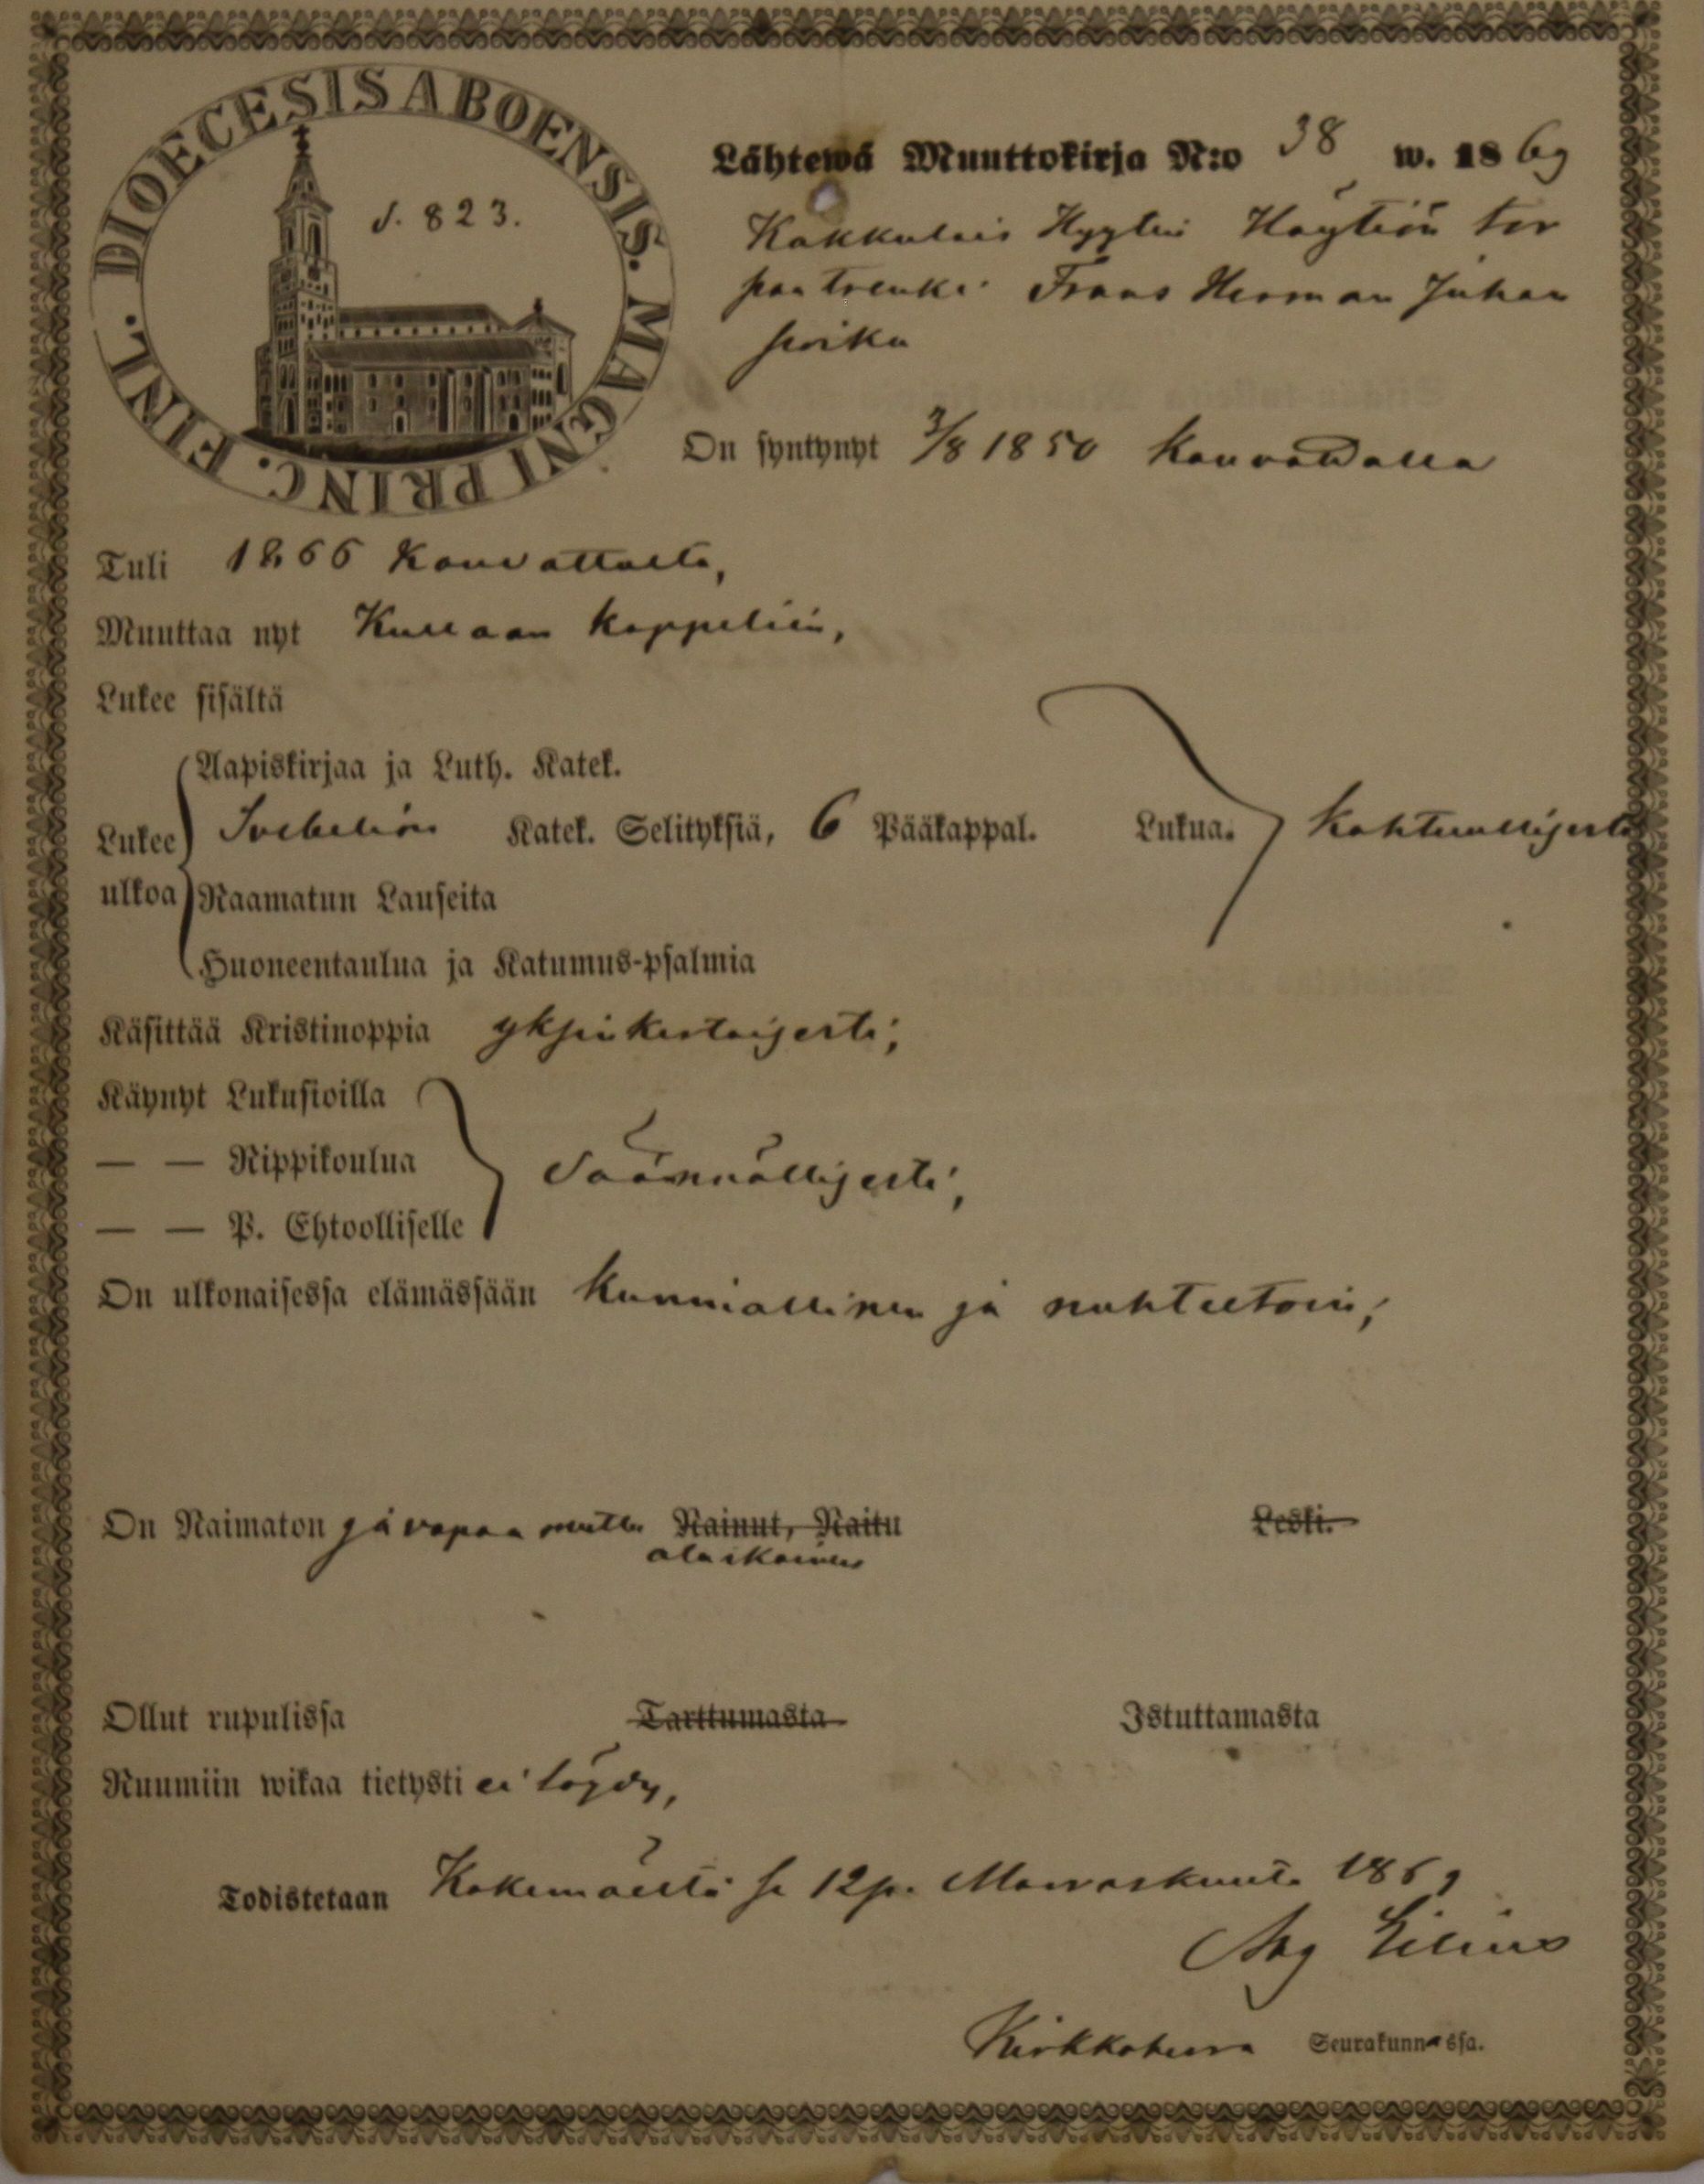 DIOECESIS ABOENSIS. MAGNI PRINC. FINL.
S. 823.
Lähtewä Muuttokirja N:o 38 w. 1869
Kakkulais Hyytin Höytiön tor
pan trenki Frans Herman Juhan
poika
On syntynyt 3/8 1850 Kauvattalla
Tuli 1866 Kauvattalta,
Muuttaa nyt Kullaan kappeliin,
Lukee sisältä
Lukee ulkoa
Aapiskirjaa ja Luth. Katek.
Svebeliön Katek. Selityksiä, 6 Pääkappal. Lukua. kohtuullisesti
Raamatun Lauseita
Huoneentaulua ja Katumus-psalmia
Käsittää Kristinoppia yksinkertaisesti;
Käynyt Lukusioilla
— — Rippikoulua Säännöllisesti;
— — P. Ehtoolliselle
On ulkonaisessa elämässään kunniallinen ja nuhteetoin;
On Naimaton ja vapaa mutta Nainut, Naitu Leski.
alaikäinen
Ollut rupulissa Tarttumasta Istuttamasta
Ruumiin wikaa tietysti ei löydy,
Todistetaan Kokemäeltä se 12 p. Marraskuuta 1869
Aug Lilius
Kirkkoherra Seurakunnassa.